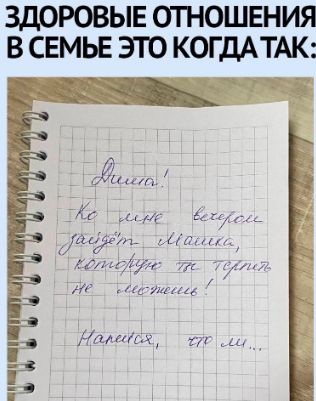 ЗДОРОВЫЕ ОТНОШЕНИЯ
В СЕМЬЕ ЭТО КОГДА ТАК:
Дима!
Ко мне вечером
зайдёт Машка,
которую ты терпеть
не можешь!
Напейся, что ли...